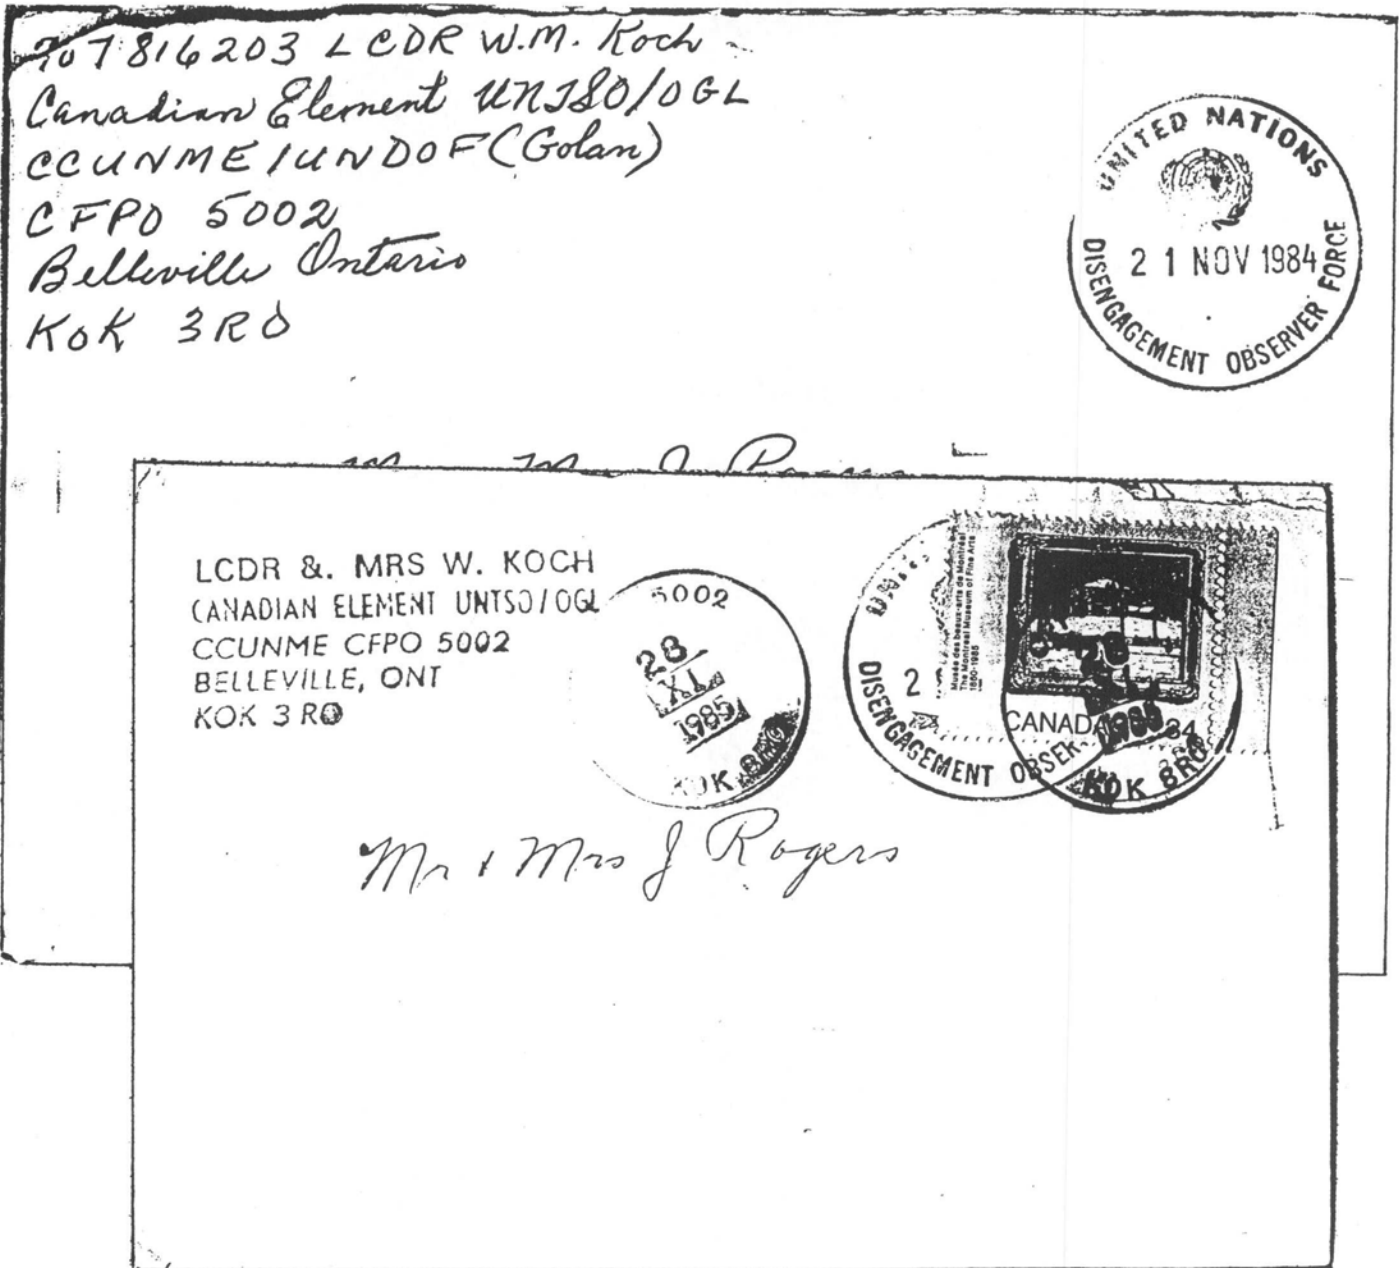 707816203 LCDR W.M. Koch
Canadian Element UNTSO/OGL
CCUNME/UNDOF (Golan)
CFPO 5002
Belleville Ontario
K0K 3R0
UNITED NATIONS
21 NOV 1984
DISENGAGEMENT OBSERVER FORCE
LCDR &. MRS W. KOCH
CANADIAN ELEMENT UNTSO/OGL
CCUNME CFPO 5002
BELLEVILLE, ONT
KOK 3 RO
5002
28
XI
1985
K0K
Musée des beaux-arts de Montréal
The Montreal Museum of Fine Arts
1860-1985
CANADA 34
2
DISENGAGEMENT OBSER
K0K 3R0
Mr & Mrs J Rogers